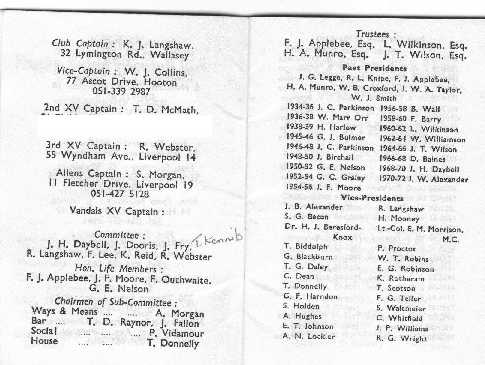 Club Captain : K. J. Langshaw,
32 Lymington Rd., Wallasey
Vice-Captain : W. J. Collins,
77 Ascot Drive, Hooton
051-339 2987
2nd XV Captain : T. D. McMath,
3rd XV Captain : R. Webster,
55 Wyndham Ave., Liverpool 14
Allens Captain : S. Morgan,
11 Fletcher Drive, Liverpool 19
051-427 5128
Vandals XV Captain :
Committee :
J. H. Daybell, J. Dooris, J. Fry,
R. Langshaw, F. Lee, K. Reid, R. Webster
Hon. Life Members :
F. J. Applebee, J. F. Moore, F. Outhwaite,
G. E. Nelson
Chairmen of Sub-Committee :
Ways & Means .... .... A. Morgan
Bar .... T. D. Raynor, J. Fallon
Social .... .... .... P. Vidamour
House .... .... T. Donnelly
Trustees :
F. J. Applebee, Esq. L. Wilkinson, Esq.
H. A. Munro, Esq. J. T. Wilson, Esq.
Past Presidents
J. G. Legge, R. L. Knipe, F. J. Applebee,
H. A. Munro, W. B. Croxford, J. W. A. Taylor,
W. J. Smith
1934-36 J. C. Parkinson 1956-58 B. Wall
1936-38 W. Marr Orr 1958-60 F. Barry
1938-39 H. Harlow 1960-62 L. Wilkinson
1945-46 G. J. Bulmer 1962-64 W. Williamson
1946-48 J. C. Parkinson 1964-66 J. T. Wilson
1948-50 J. Birchall 1966-68 D. Baines
1950-52 G. E. Nelson 1968-70 J. H. Daybell
1952-54 G. C. Grasley 1970-72 J. W. Alexander
1954-56 J. F. Moore
Vice-Presidents
J. B. Alexander R. Langshaw
S. G. Bacon H. Mooney
Dr. H. J. Beresford-Knox Lt.-Col. E. M. Morrison, M.C.
T. Biddulph P. Proctor
G. Blackburn W. T. Robins
T. G. Daley E. G. Robinson
C. Dean K. Rotheram
T. Donnelly T. Scotson
G. F. Harndon F. G. Telfer
S. Holden S. Waltmeier
A. Hughes C. Whitfield
E. T. Johnson J. P. Williams
A. N. Lockier R. G. Wright